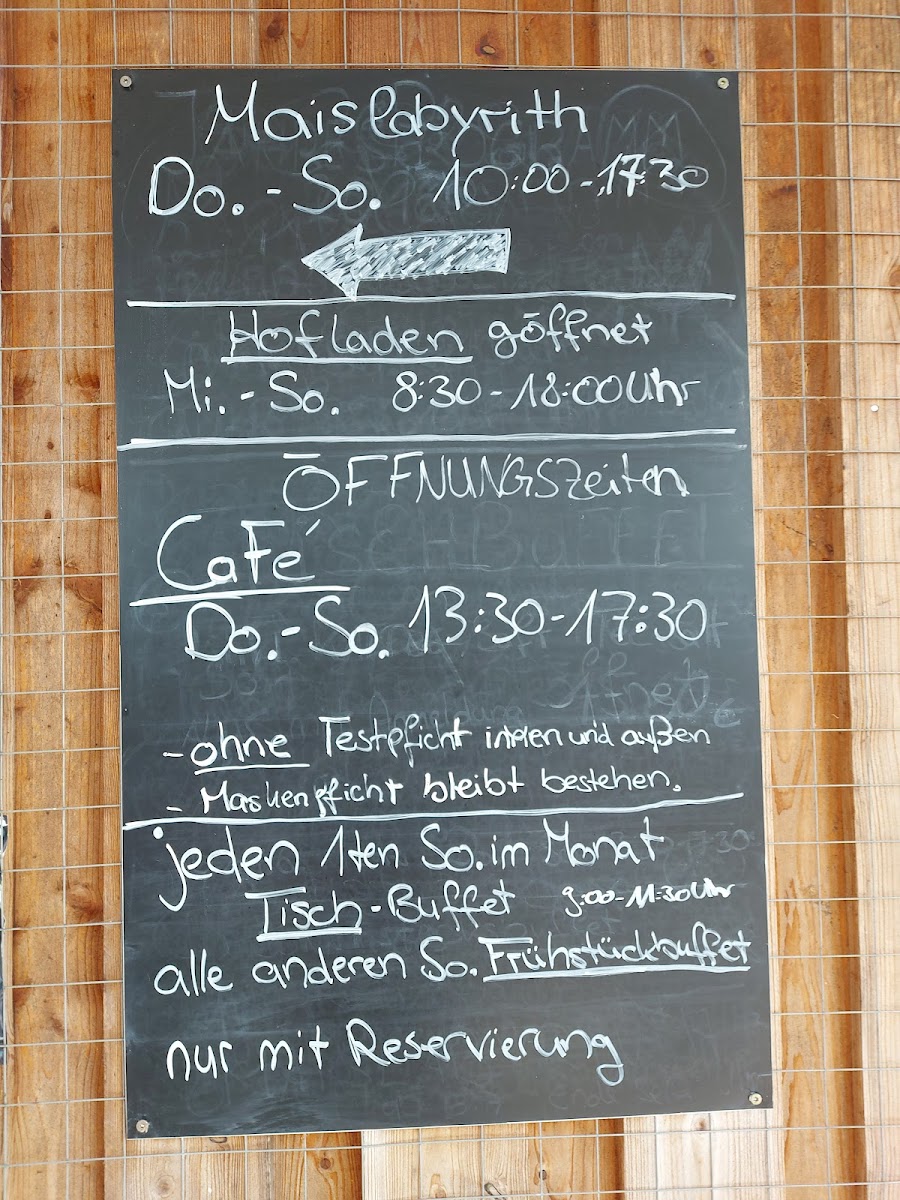 Maislabyrith
Do. - So. 10:00 - 17:30
Hofladen göffnet
Mi. - So. 8:30 - 18:00 Uhr
ÖFFNUNGSzeiten
CaFé
Do. - So. 13:30 - 17:30
- ohne Testpflicht innen und außen
- Maskenpflicht bleibt bestehen.
jeden 1ten So. im Monat
Tisch - Buffet 9:00 - 11:30 Uhr
alle anderen So. Frühstückbuffet
nur mit Reservierung